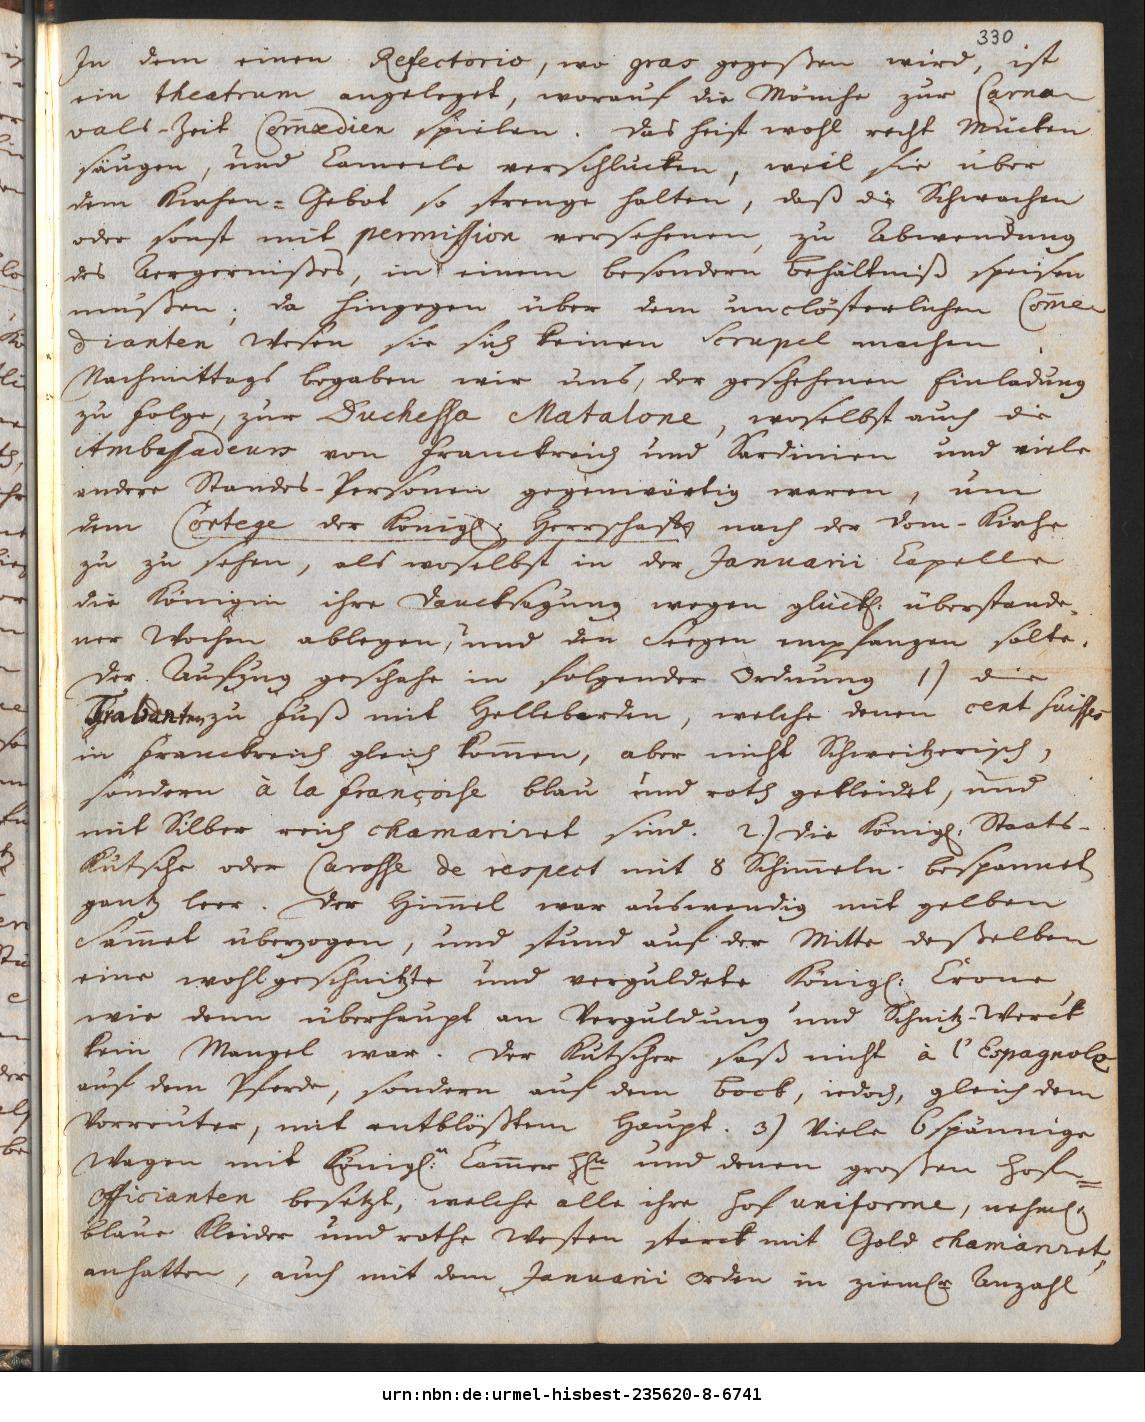 330
In dem einen Refectorio, wo gras gegeßen wird, ist
ein theatrum angeleget, worauf die Mönche zur Carna-
vals-Zeit Comœdien spielen. Das heist wohl recht Mücken
säugen, und Cameele verschlucken, weil sie über
dem Kirchen-Gebot so strenge halten, daß die Schwachen
oder sonst mit permission versehenen, zu Abwendung
des Aergernißes, in einem besondern Behältniß speisen
müßen; da hingegen über dem unclösterlichen Come-
dianten Wesen sie sich keinen Scrupel machen.
Nachmittags begaben wir uns, der geschehenen Einladung
zu folge, zur Duchessa Matalone, woselbst auch die
Ambassadeurs von Franckreich und Sardinien und viele
andere Standes-Personen gegenwärtig waren, um
dem Cortege der Königl: Herrschafft nach der Dom-Kirche
zu zu sehen, als woselbst in der Januarii Capelle
die Königin ihre Dancksagung wegen glückl: überstande-
ner Wochen ablegen, und den Seegen empfangen solte.
Der Aufzug geschahe in folgender Ordnung 1) die
Trabanten zu Fuß mit Hellebarden, welche denen cent suisses
in Franckreich gleich kommen, aber nicht Schweitzerisch,
sondern à la françoise blau und roth gekleidet, und
mit Silber reich chamariret sind. 2.) die Königl: Staats-
Kutsche oder Carosse de respect mit 8 Schimmeln bespannet
gantz leer. Der Himmel war auswendig mit gelben
Sammet überzogen, und stund auf der Mitte deßelben
eine wohlgeschnitzte und verguldete Königl: Crone,
wie denn überhaupt an Verguldung und Schnitz-Werck
kein Mangel war. Der Kutscher saß nicht à l'Espagnole
auf dem Pferde, sondern auf dem Bock, iedoch, gleich dem
Vorreuter, mit entblößtem Haupt. 3) Viele 6 spännige
Wagen mit Königl: Cammer H und denen großen Hof-
officianten besetzt, welche alle ihre Hof uniforme, nehml:
blaue Kleider und rothe Westen starck mit Gold chamariret,
anhatten, auch mit dem Januarii Orden in ziemlr Anzahl
urn:nbn:de:urmel-hisbest-235620-8-6741